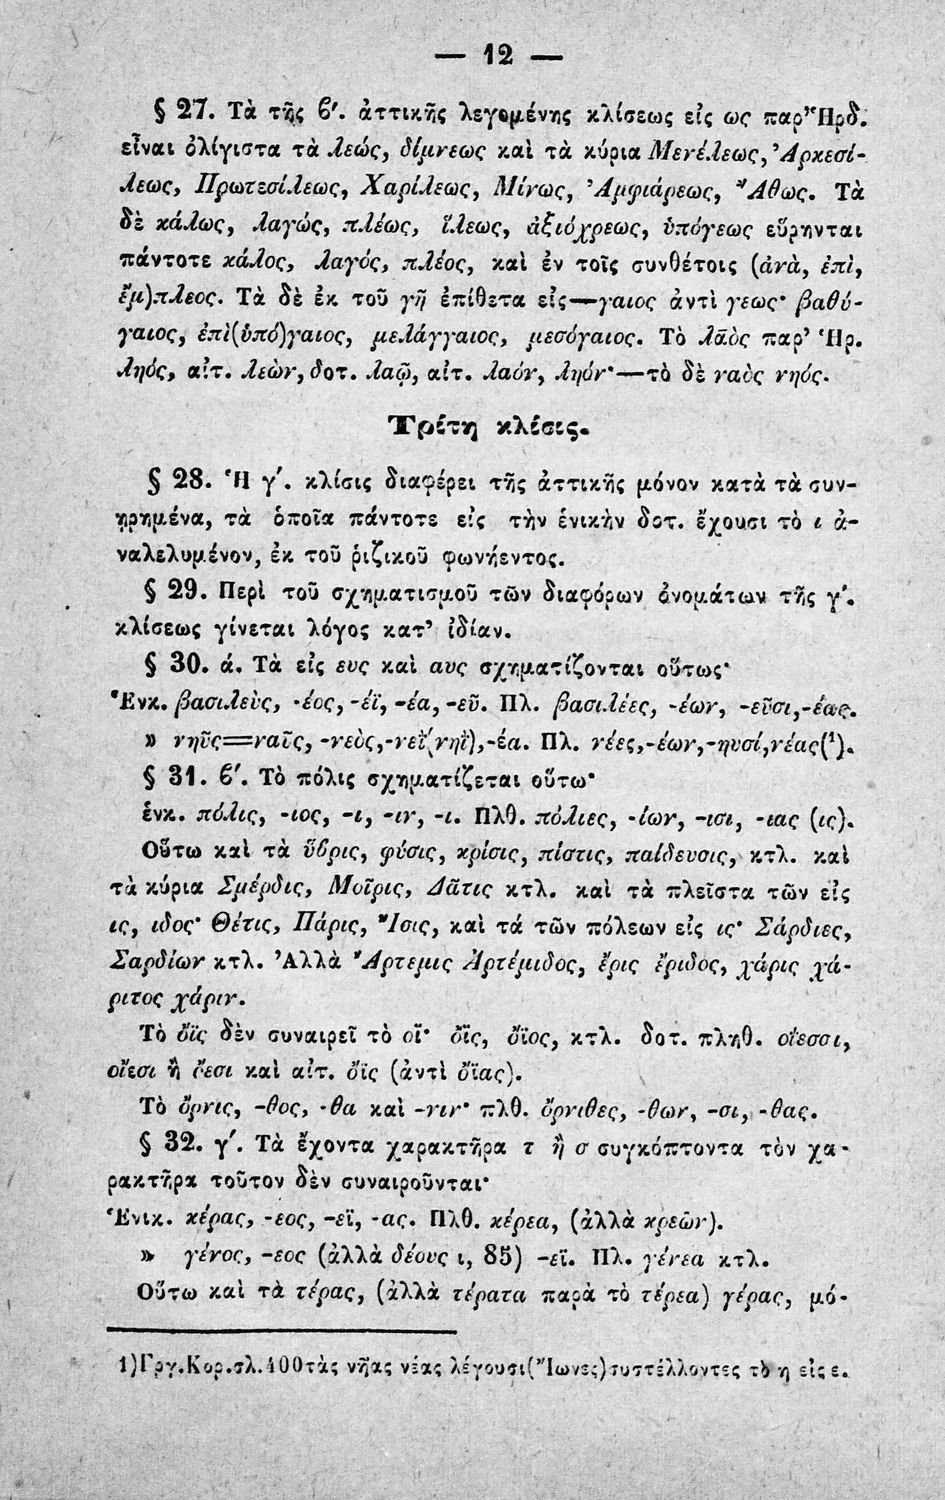 — 12 —
§ 27. Τὰ τῆς β'. ἀττικῆς λεγομένης κλίσεως εἰς ως παρ' Ἡρδ.
εἶναι ὀλίγιστα τὰ λεώς, δίμνεως καὶ τὰ κύρια Μενέλεως, Ἀρκεσί-
λεως, Πρωτεσίλεως, Χαρίλεως, Μίνως, Ἀμφιάρεως, Ἄθως. Τὰ
δὲ κάλως, λαγώς, πλέως, ἵλεως, ἀξιόχρεως, ὑπόγεως εὕρηνται
πάντοτε κάλος, λαγός, πλέος, καὶ ἐν τοῖς συνθέτοις (ἀνὰ, ἐπὶ,
ἔμ)πλεος. Τὰ δὲ ἐκ τοῦ γῆ ἐπίθετα εἰς—γαιος ἀντὶ γεως· βαθύ-
γαιος, ἐπὶ(ὑπό)γαιος, μελάγγαιος, μεσόγαιος. Τὸ λᾱὸς παρ' Ἡρ.
ληός, αἰτ. λεὼν, δοτ. λαῷ, αἰτ. λαόν, ληόν·—τὸ δὲ ναὸς νηός.
Τρίτη κλίσις.
§ 28. Ἡ γ'. κλίσις διαφέρει τῆς ἀττικῆς μόνον κατὰ τὰ συν-
ῃρημένα, τὰ ὁποῖα πάντοτε εἰς τὴν ἑνικὴν δοτ. ἔχουσι τὸ ι ἀ-
ναλελυμένον, ἐκ τοῦ ῥιζικοῦ φωνήεντος.
§ 29. Περὶ τοῦ σχηματισμοῦ τῶν διαφόρων ὀνομάτων τῆς γ'.
κλίσεως γίνεται λόγος κατ' ἰδίαν.
§ 30. ά. Τὰ εἰς ευς καὶ αυς σχηματίζονται οὕτως·
Ἑνκ. βασιλεὺς, -έος, -έϊ, -έα, -εῦ. Πλ. βασιλέες, -έων, -εῦσι,-έας.
» νηῦς=ναῦς, -νεὸς,-νεῒ(νηῒ),-έα. Πλ. νέες,-έων,-ηυσί,νέας(¹).
§ 31. β'. Τὸ πόλις σχηματίζεται οὕτω·
ἑνκ. πόλις, -ιος, -ι, -ιν, -ι. Πλθ. πόλιες, -ίων, -ισι, -ιας (ις).
Οὕτω καὶ τὰ ὕβρις, φύσις, κρίσις, πίστις, παίδευσις, κτλ. καὶ
τὰ κύρια Σμέρδις, Μοῖρις, Δᾶτις κτλ. καὶ τὰ πλεῖστα τῶν εἰς
ις, ιδος· Θέτις, Πάρις, Ἴσις, καὶ τά τῶν πόλεων εἰς ις· Σάρδιες,
Σαρδίων κτλ. Ἀλλὰ Ἄρτεμις Ἀρτέμιδος, ἔρις ἔριδος, χάρις χά-
ριτος χάριν.
Τὸ ὄϊς δὲν συναιρεῖ τὸ οϊ· ὄϊς, ὄϊος, κτλ. δοτ. πληθ. οἴεσσι,
οἴεσι ἢ ὄεσι καὶ αἰτ. ὄϊς (ἀντὶ ὄϊας).
Τὸ ὄρνις, -θος, -θα καὶ -νιν· πλθ. ὄρνιθες, -θων, -σι, -θας.
§ 32. γ'. Τὰ ἔχοντα χαρακτῆρα τ ἢ σ συγκόπτοντα τὸν χα-
ρακτῆρα τοῦτον δὲν συναιροῦνται·
Ἑνικ. κέρας, -εος, -εϊ, -ας. Πλθ. κέρεα, (ἀλλὰ κρεῶν).
» γένος, -εος (ἀλλὰ δέους ι, 85) -εϊ. Πλ. γένεα κτλ.
Οὕτω καὶ τὰ τέρας, (ἀλλὰ τέρατα παρὰ τὸ τέρεα) γέρας, μό-
1)Γργ.Κορ.σλ.400τὰς νῆας νέας λέγουσι(Ἴωνες)συστέλλοντες τὸ η εἰς ε.